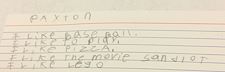 PAXTON
I Like base ball.
I Like to play.
I Like PizzA.
I Like the movie sandlot
I Like LEGO